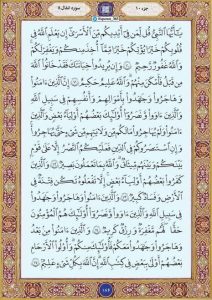 جزء ۱۰
سوره انفال ۸
يَٰٓأَيُّهَا ٱلنَّبِيُّ قُل لِّمَن فِيٓ أَيْدِيكُم مِّنَ ٱلْأَسْرَىٰٓ إِن يَعْلَمِ ٱللَّهُ فِي
قُلُوبِكُمْ خَيْرًا يُؤْتِكُمْ خَيْرًا مِّمَّآ أُخِذَ مِنكُمْ وَيَغْفِرْ لَكُمْ
وَٱللَّهُ غَفُورٌ رَّحِيمٌ ۝ وَإِن يُرِيدُوا۟ خِيَانَتَكَ فَقَدْ خَانُوا۟ ٱللَّهَ
مِن قَبْلُ فَأَمْكَنَ مِنْهُمْ وَٱللَّهُ عَلِيمٌ حَكِيمٌ ۝ إِنَّ ٱلَّذِينَ ءَامَنُوا۟
وَهَاجَرُوا۟ وَجَٰهَدُوا۟ بِأَمْوَٰلِهِمْ وَأَنفُسِهِمْ فِي سَبِيلِ ٱللَّهِ
وَٱلَّذِينَ ءَاوَوا۟ وَّنَصَرُوٓا۟ أُو۟لَٰٓئِكَ بَعْضُهُمْ أَوْلِيَآءُ بَعْضٍ وَٱلَّذِينَ
ءَامَنُوا۟ وَلَمْ يُهَاجِرُوا۟ مَا لَكُم مِّن وَلَٰيَتِهِم مِّن شَيْءٍ حَتَّىٰ يُهَاجِرُوا۟
وَإِنِ ٱسْتَنصَرُوكُمْ فِي ٱلدِّينِ فَعَلَيْكُمُ ٱلنَّصْرُ إِلَّا عَلَىٰ قَوْمٍۭ
بَيْنَكُمْ وَبَيْنَهُم مِّيثَٰقٌ وَٱللَّهُ بِمَا تَعْمَلُونَ بَصِيرٌ ۝ وَٱلَّذِينَ
كَفَرُوا۟ بَعْضُهُمْ أَوْلِيَآءُ بَعْضٍ إِلَّا تَفْعَلُوهُ تَكُن فِتْنَةٌ فِي
ٱلْأَرْضِ وَفَسَادٌ كَبِيرٌ ۝ وَٱلَّذِينَ ءَامَنُوا۟ وَهَاجَرُوا۟ وَجَٰهَدُوا۟
فِي سَبِيلِ ٱللَّهِ وَٱلَّذِينَ ءَاوَوا۟ وَّنَصَرُوٓا۟ أُو۟لَٰٓئِكَ هُمُ ٱلْمُؤْمِنُونَ
حَقًّا لَّهُم مَّغْفِرَةٌ وَرِزْقٌ كَرِيمٌ ۝ وَٱلَّذِينَ ءَامَنُوا۟ مِنۢ بَعْدُ
وَهَاجَرُوا۟ وَجَٰهَدُوا۟ مَعَكُمْ فَأُو۟لَٰٓئِكَ مِنكُمْ وَأُو۟لُوا۟ ٱلْأَرْحَامِ
بَعْضُهُمْ أَوْلَىٰ بِبَعْضٍ فِي كِتَٰبِ ٱللَّهِ إِنَّ ٱللَّهَ بِكُلِّ شَيْءٍ عَلِيمٌۢ ۝
۱۸۶